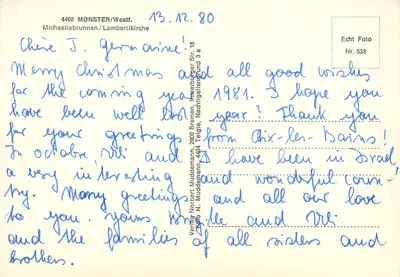 4400 MÜNSTER/Westf.
Michaelisbrunnen / Lambertikirche
13.12.80
Echt Foto
Nr. 538
Chère J. Germaine!
Merry Christmas and all good wishes
for the coming year 1981. I hope you
have been well last year? Thank you
for your greetings from Aix-les-Bains!
In octobre, Uli and I have been in Israel,
a very interesting and wonderful coun-
try. Many greetings and all our love
to you. yours and Uli
and the families of all sisters and
brothers.
Verlag Norbert Muddemann, 2800 Bremen, Str. 18
N. Muddemann, 4401 Telgte, Nachtigallengrund 3 a